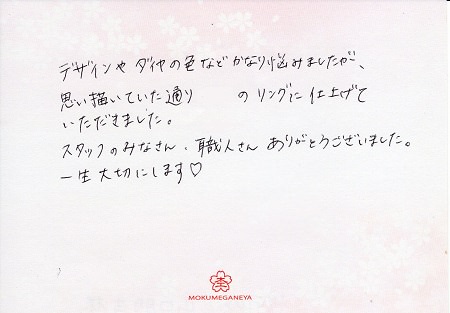 デザインや ダイヤの色など かなり悩みましたが、
思い描いていた通り の リングに 仕上げて
いただきました。
スタッフのみなさん、職人さん ありがとうございました。
一生大切にします♡
MOKUMEGANEYA